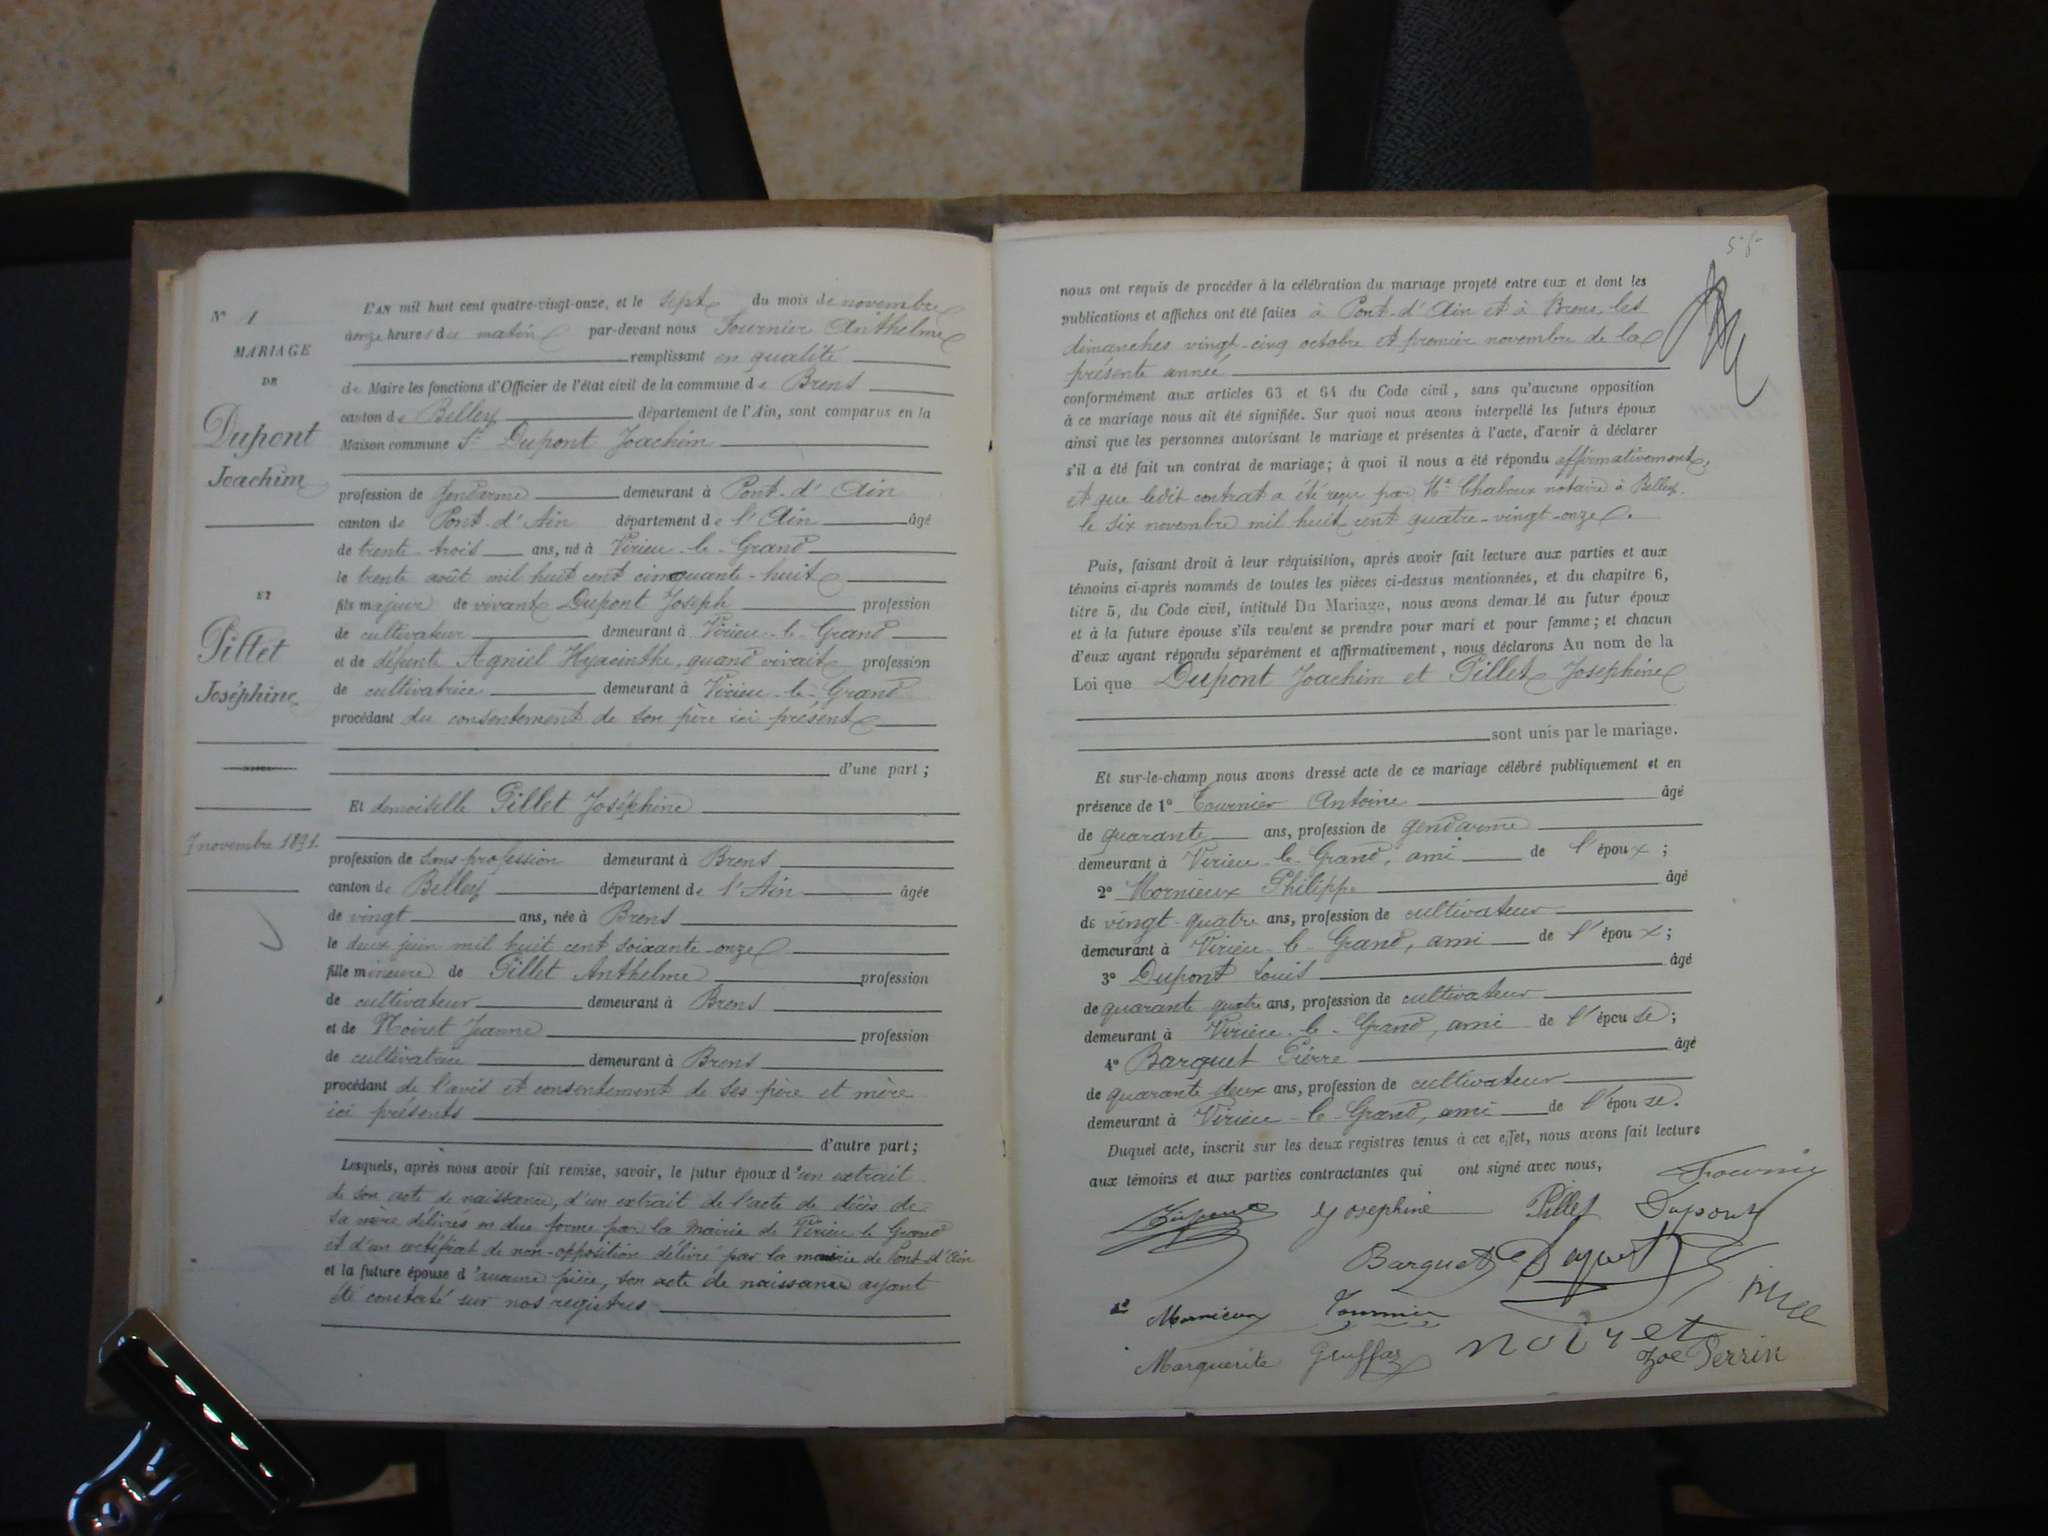 N° 1
MARIAGE
DE
Dupont
Joachim
ET
Pillet
Joséphine
7 novembre 1891.
L'AN mil huit cent quatre-vingt-onze, et le sept du mois de novembre
à onze heures du matin par-devant nous Fournier Anthelme
remplissant en qualité
de Maire les fonctions d'Officier de l'état civil de la commune de Brens
canton de Belley département de l'Ain, sont comparus en la
Maison commune Sr Dupont Joachim
profession de gendarme demeurant à Pont-d'Ain
canton de Pont-d'Ain département de l'Ain âgé
de trente-trois ans, né à Virieu-le-Grand
le trente août mil huit cent cinquante-huit
fils majeur de vivant Dupont Joseph profession
de cultivateur demeurant à Virieu-le-Grand
et de défunte Agniel Hyacinthe, quand vivait profession
de cultivatrice demeurant à Virieu-le-Grand
procédant du consentement de son père ici présent
d'une part;
Et demoiselle Pillet Joséphine
profession de sans profession demeurant à Brens
canton de Belley département de l'Ain âgée
de vingt ans, née à Brens
le deux juin mil huit cent soixante-onze
fille mineure de Pillet Anthelme profession
de cultivateur demeurant à Brens
et de Noiret Jeanne profession
de cultivatrice demeurant à Brens
procédant de l'avis et consentement de ses père et mère
ici présents
d'autre part;
Lesquels, après nous avoir fait remise, savoir, le futur époux d'un extrait
de son acte de naissance, d'un extrait de l'acte de décès de
sa mère délivrés en due forme par la mairie de Virieu le Grand
et d'un certificat de non-opposition délivré par la mairie de Pont-d'Ain
et la future épouse d'aucune pièce, son acte de naissance ayant
été constaté sur nos registres
55
nous ont requis de procéder à la célébration du mariage projeté entre eux et dont les
publications et affiches ont été faites à Pont-d'Ain et à Brens, les
dimanches vingt-cinq octobre et premier novembre de la
présente année
conformément aux articles 63 et 64 du Code civil, sans qu'aucune opposition
à ce mariage nous ait été signifiée. Sur quoi nous avons interpellé les futurs époux
ainsi que les personnes autorisant le mariage et présentes à l'acte, d'avoir à déclarer
s'il a été fait un contrat de mariage; à quoi il nous a été répondu affirmativement,
et que ledit contrat a été reçu par Me Chaboux notaire à Belley.
le six novembre mil huit cent quatre-vingt-onze.
Puis, faisant droit à leur réquisition, après avoir fait lecture aux parties et aux
témoins ci-après nommés de toutes les pièces ci-dessus mentionnées, et du chapitre 6,
titre 5, du Code civil, intitulé Du Mariage, nous avons demandé au futur époux
et à la future épouse s'ils veulent se prendre pour mari et pour femme; et chacun
d'eux ayant répondu séparément et affirmativement, nous déclarons Au nom de la
Loi que Dupont Joachim et Pillet Joséphine
sont unis par le mariage.
Et sur-le-champ nous avons dressé acte de ce mariage célébré publiquement et en
présence de 1° Tournier Antoine âgé
de quarante ans, profession de gendarme
demeurant à Virieu-le-Grand, ami de l'époux;
2° Mornieux Philippe âgé
de vingt-quatre ans, profession de cultivateur
demeurant à Virieu-le-Grand, ami de l'époux;
3° Dupont Louis âgé
de quarante quatre ans, profession de cultivateur
demeurant à Virieu-le-Grand, ami de l'épouse;
4° Barquet Pierre âgé
de quarante deux ans, profession de cultivateur
demeurant à Virieu-le-Grand, ami de l'épouse.
Duquel acte, inscrit sur les deux registres tenus à cet effet, nous avons fait lecture
aux témoins et aux parties contractantes qui ont signé avec nous,
Fournier
Dupont Josephine Pillet Dupont
Barquet
Mornieux Tournier
Marguerite noiret Zoé Perrin